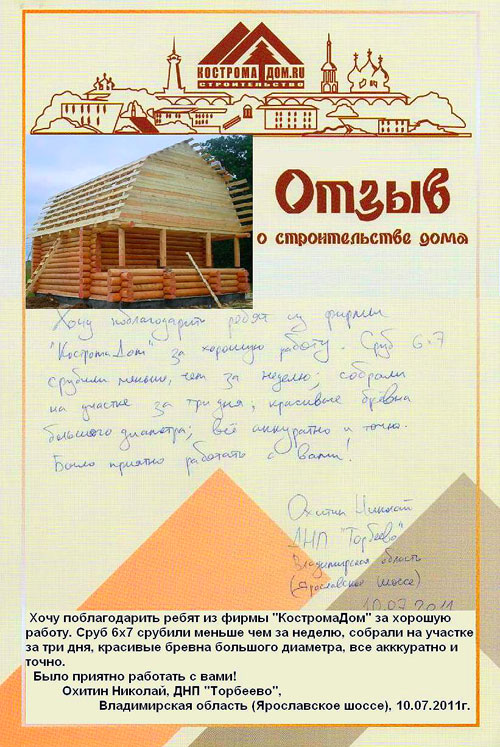 КОСТРОМА ДОМ.RU
СТРОИТЕЛЬСТВО
Отзыв
о строительстве дома
Хочу поблагодарить ребят из фирмы
"Кострома Дом" за хорошую работу. Сруб 6х7
срубили меньше, чем за неделю; собрали
на участке за три дня; красивые брёвна
большого диаметра; всё аккуратно и точно.
Было приятно работать с вами!
Охитин Николай
ДНП "Торбеево"
Владимирская область
(Ярославское шоссе)
10.07.2011
Хочу поблагодарить ребят из фирмы "КостромаДом" за хорошую
работу. Сруб 6х7 срубили меньше чем за неделю, собрали на участке
за три дня, красивые бревна большого диаметра, все акккуратно и
точно.
Было приятно работать с вами!
Охитин Николай, ДНП "Торбеево",
Владимирская область (Ярославское шоссе), 10.07.2011г.